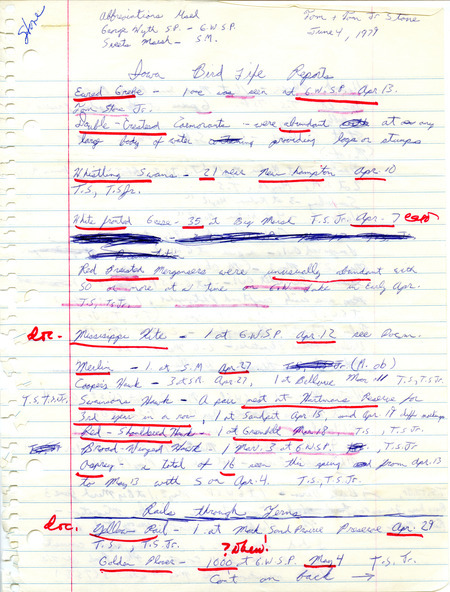 Stone
Abbreviations Used
Tom + Tom Jr Stone
George Wyth S.P. - G.W.S.P.
June 4, 1979
Sweets Marsh - S.M.
Iowa Bird Life Reports
Eared Grebe - one was seen at G.W.S.P. Apr 13.
Tom Stone Jr.
Double-Crested Cormorants - were abundant at any
large body of water providing logs or stumps
Whistling Swans - 21 near New Hampton Apr. 10
T.S., T.S Jr.
White fronted Geese - 35 at Big Marsh T.S. Jr. Apr. 7
Red Breasted Mergansers were unusually abundant with
50 or more at a time on G.W. Lake in Early Apr.
T.S., T.S. Jr.
doc. - Mississippi Kite - 1 at G.W.S.P. Apr. 12 see Docum.
Merlin - 1 at S.M Apr 27 Jr (A. ob)
Cooper's Hawk - 3 at S.M. Apr 27, 1 at Bellevue Mar 11 T.S., T.S Jr.
T.S., T.S. Jr. Swainsons Hawk - A pair nest at Hartmans Reserve for
3rd year in a row, 1 at Sandpit Apr 15, and Apr 17
Red-Shouldered Hawk - 1 at Greenhill Mar 18 T.S., T.S. Jr
Broad-Winged Hawk - 1 Mar. 3 at G.W.S.P. T.S. Jr
Osprey - a total of 16 seen this spring from Apr. 13
to May 13 with 5 on Apr. 4. T.S., T.S. Jr.
Rails through Terns
doc. Yellow Rail - 1 at Med. Sand Prairie Preserve Apr. 29
T.S., T.S. Jr. ? when!
Golden Plover - 1000 at G.W.S.P. May 4 T.S. Jr.
Con't on back →